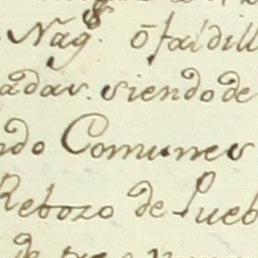 Nag.^s ō faldill
adas. siendo de
ndo Comunes
Rebozo de Pueb